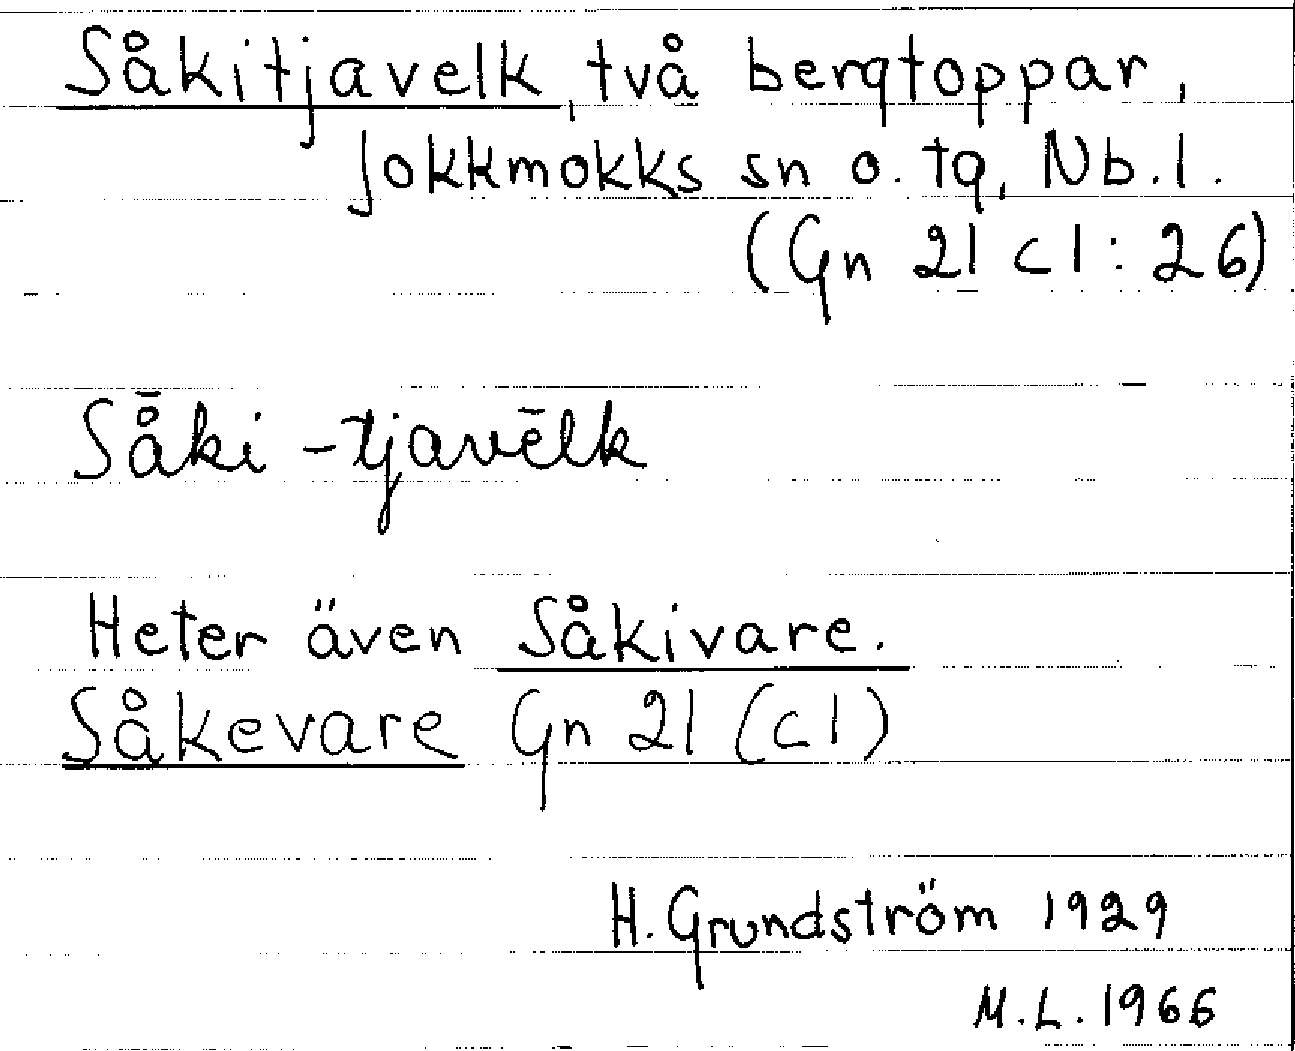 Såkitjavelk, två bergtoppar,
Jokkmokks sn o. tg, Nb. l.
(Gn 21 c 1 : 26)
Så̄ki -tjavēlk
Heter även Såkivare.
Såkevare Gn 21 (c 1)
H. Grundström 1929
M.L. 1966